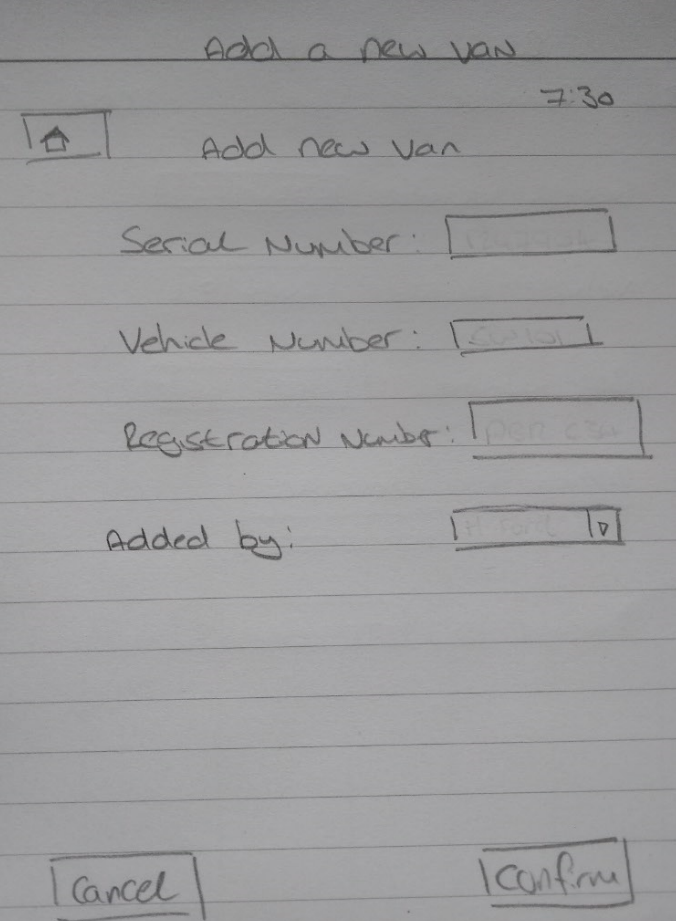 Add a new van
7:30
Add new van
Serial Number:
Vehicle Number:
Registration Number:
Added by:
Cancel
Confirm